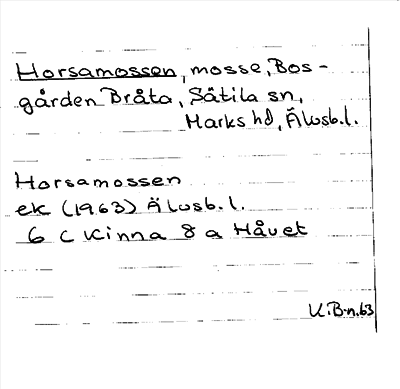 Horsamossen, mosse, Bos-
gården Bråta, Sätila sn,
Marks hd, Älvsb.l.
Horsamossen
ek (1963) Älvsb.l.
6 C Kinna 8 a Håvet
K.B-n.63